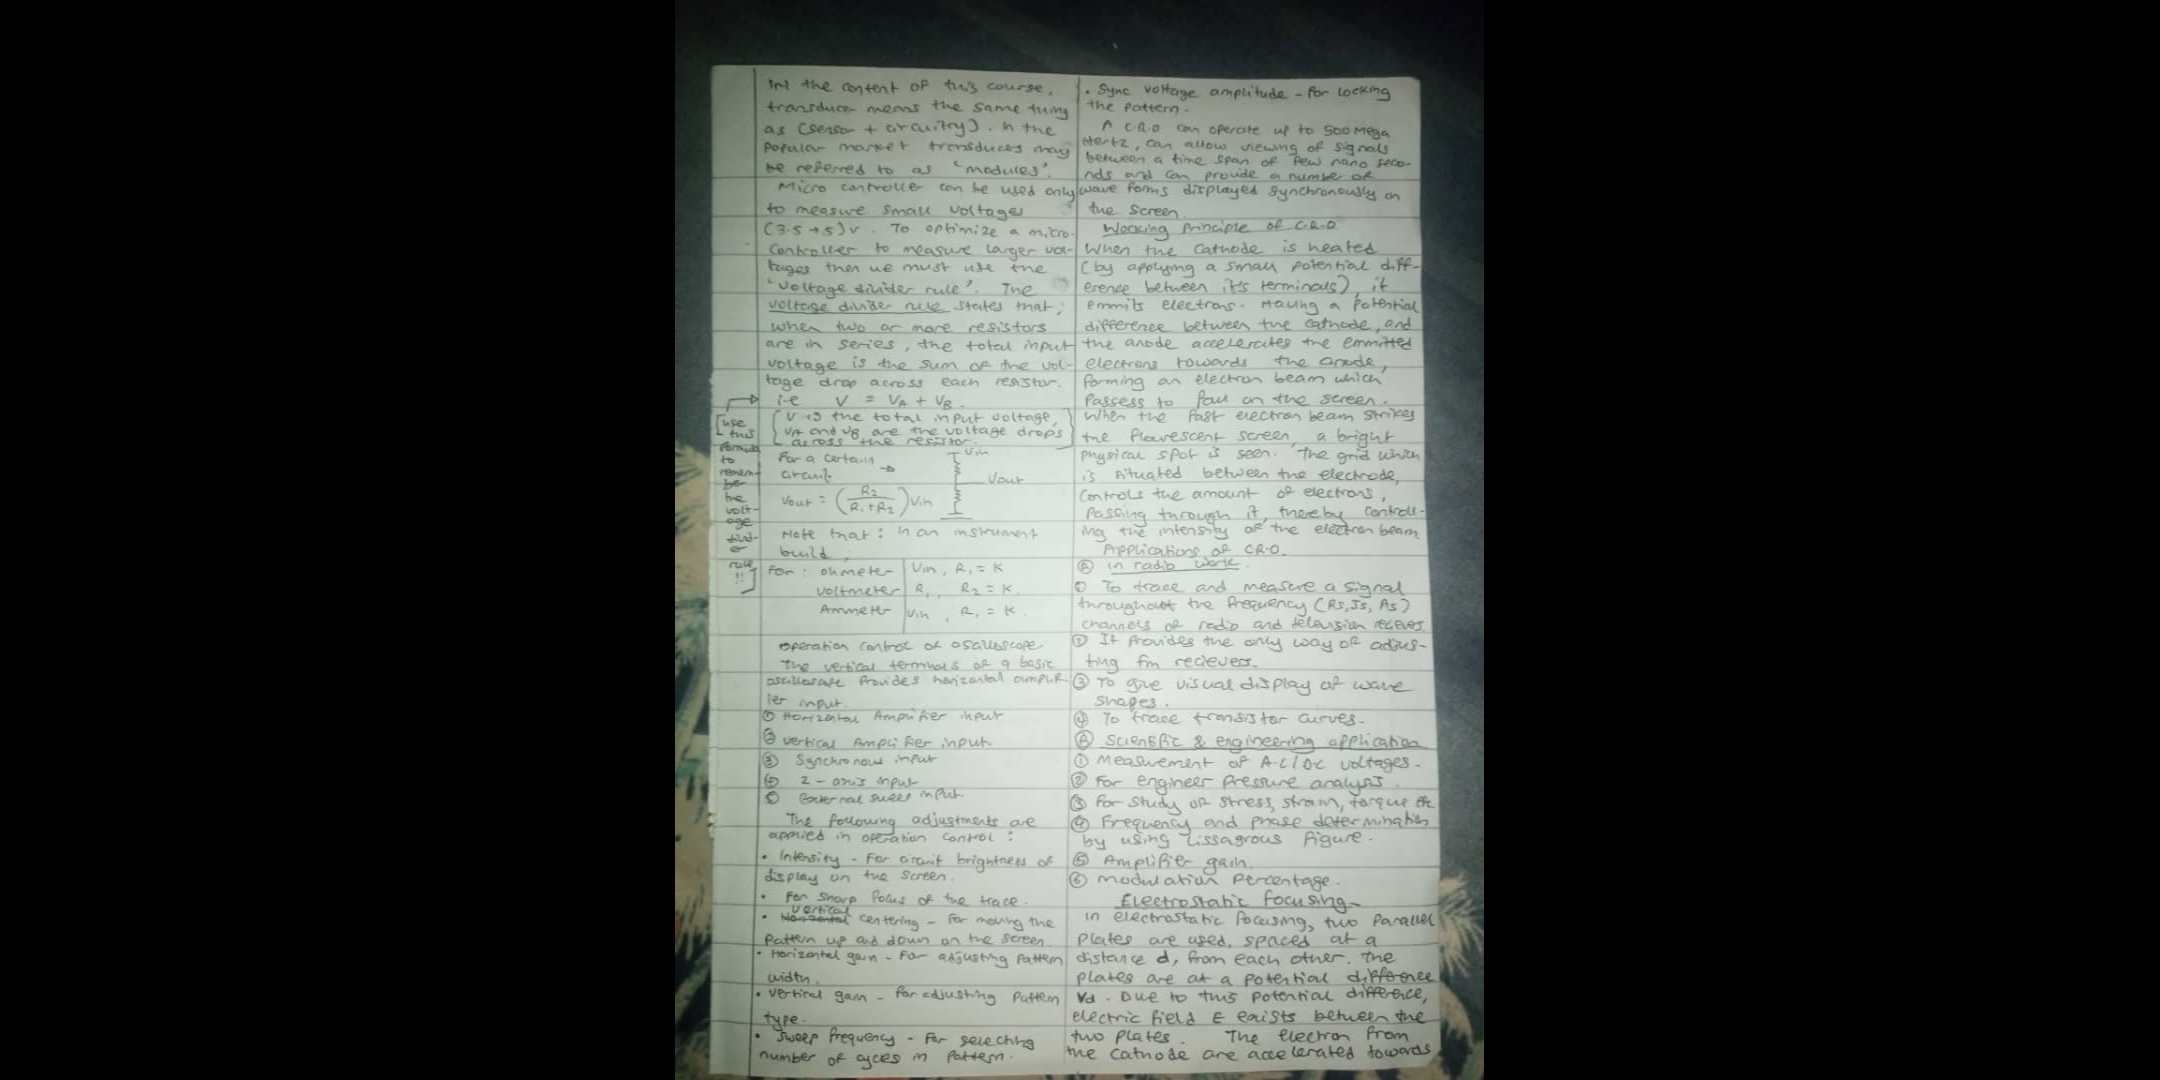 In the content of this course,
transducer means the same thing
as (sensor + circuitry). In the
popular market transducers may
be referred to as "modules".
Micro controller can be used only
to measure small voltages
(3.5 → 5)v. To optimize a micro-
controller to measure larger vol-
tages then we must use the
"voltage divider rule". The
voltage divider rule states that;
when two or more resistors
are in series, the total input
voltage is the sum of the vol-
tage drop across each resistor.
i.e V = VA + VB.
[V is the total input voltage,
VA and VB are the voltage drops
across the resistor.]
[use
this
formula
to
remem-
ber
the
volt-
age
divid-
er
rule
!!]
For a certain
circuit →
Vin
Vout
Vout = (R2 / R1+R2) Vin
Note that: In an instrument
build;
For: ohmeter | Vin, R1 = K
voltmeter | R1, R2 = K.
Ammeter | Vin, R1 = K.
operation control of oscilloscope
The vertical terminals of a basic
oscilloscope provides horizontal amplif-
ier input.
① Horizontal Amplifier input
② vertical Amplifier input.
③ Synchronous input
④ Z-axis input
⑤ External sweep input
The following adjustments are
applied in operation control:
• Intensity - For circuit brightness of
display on the screen.
• For sharp focus of the trace.
• vertical centering - For moving the
pattern up and down on the screen
• Horizontal gain - For adjusting pattern
width.
• Vertical gain - for adjusting pattern
type.
• Sweep frequency - For selecting
number of cycles in pattern.
• Sync voltage amplitude - for locking
the pattern.
A C.R.O can operate up to 500 Mega
Hertz, can allow viewing of signals
between a time span of few nano seco-
nds and can provide a number of
wave forms displayed synchronously on
the screen.
Working principle of C.R.O
When the cathode is heated
(by applying a small potential diff-
erence between it's terminals), it
emmits electrons. Having a potential
difference between the cathode, and
the anode accelerates the emmitted
electrons towards the anode,
forming an electron beam which
passess to fall on the screen.
When the fast electron beam strikes
the flourescent screen, a bright
physical spot is seen. The grid which
is situated between the electrode,
controls the amount of electrons,
passing through it, thereby controll-
ing the intensity of the electron beam
Applications of C.R.O.
Ⓐ in radio work.
① To trace and measure a signal
throughout the frequency (Rs, Is, As)
channels of radio and television recieves.
② It provides the only way of adjus-
ting fm recievers.
③ To give visual display of wave
shapes.
④ To trace transistor curves.
Ⓑ Scientific & engineering application
① Measurement of A.C/D.C voltages.
② For engineer pressure analysis.
③ For study of stress, strain, torque etc
④ Frequency and phase determination
by using Lissagrous figure.
⑤ Amplifier gain.
⑥ modulation percentage.
Electrostatic Focusing
in electrostatic focusing, two parallel
plates are used, spaced at a
distance d, from each other. The
plates are at a potential difference
Vd. Due to this potential difference,
electric field E exists between the
two plates. The electron from
the cathode are accelerated towards